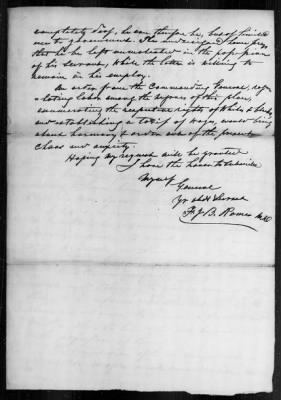 completely deaf, he can therefore be, but of limited
use to government. The undersigned hence prays
that he be left unmolested in the possession
of his servant, while the latter is willing to
remain in his employ.
An order from the Commanding General, regu-
lating labor among the negroes of this place,
enumerating the respective rights of white & black,
and establishing a tariff of wages, would bring
about harmony & order out of the present
chaos and anxiety.
Hoping my request will be granted
I have the honor to subscribe
Myself
General
Yr obdt Servant
F. J. B. Romer M.D.